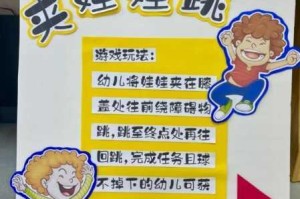 夹娃娃跳
游戏玩法:
幼儿将娃娃夹在膝
盖处往前绕障碍物
跳,跳至终点处再往
回跳,完成任务且球
不掉下的幼儿可获